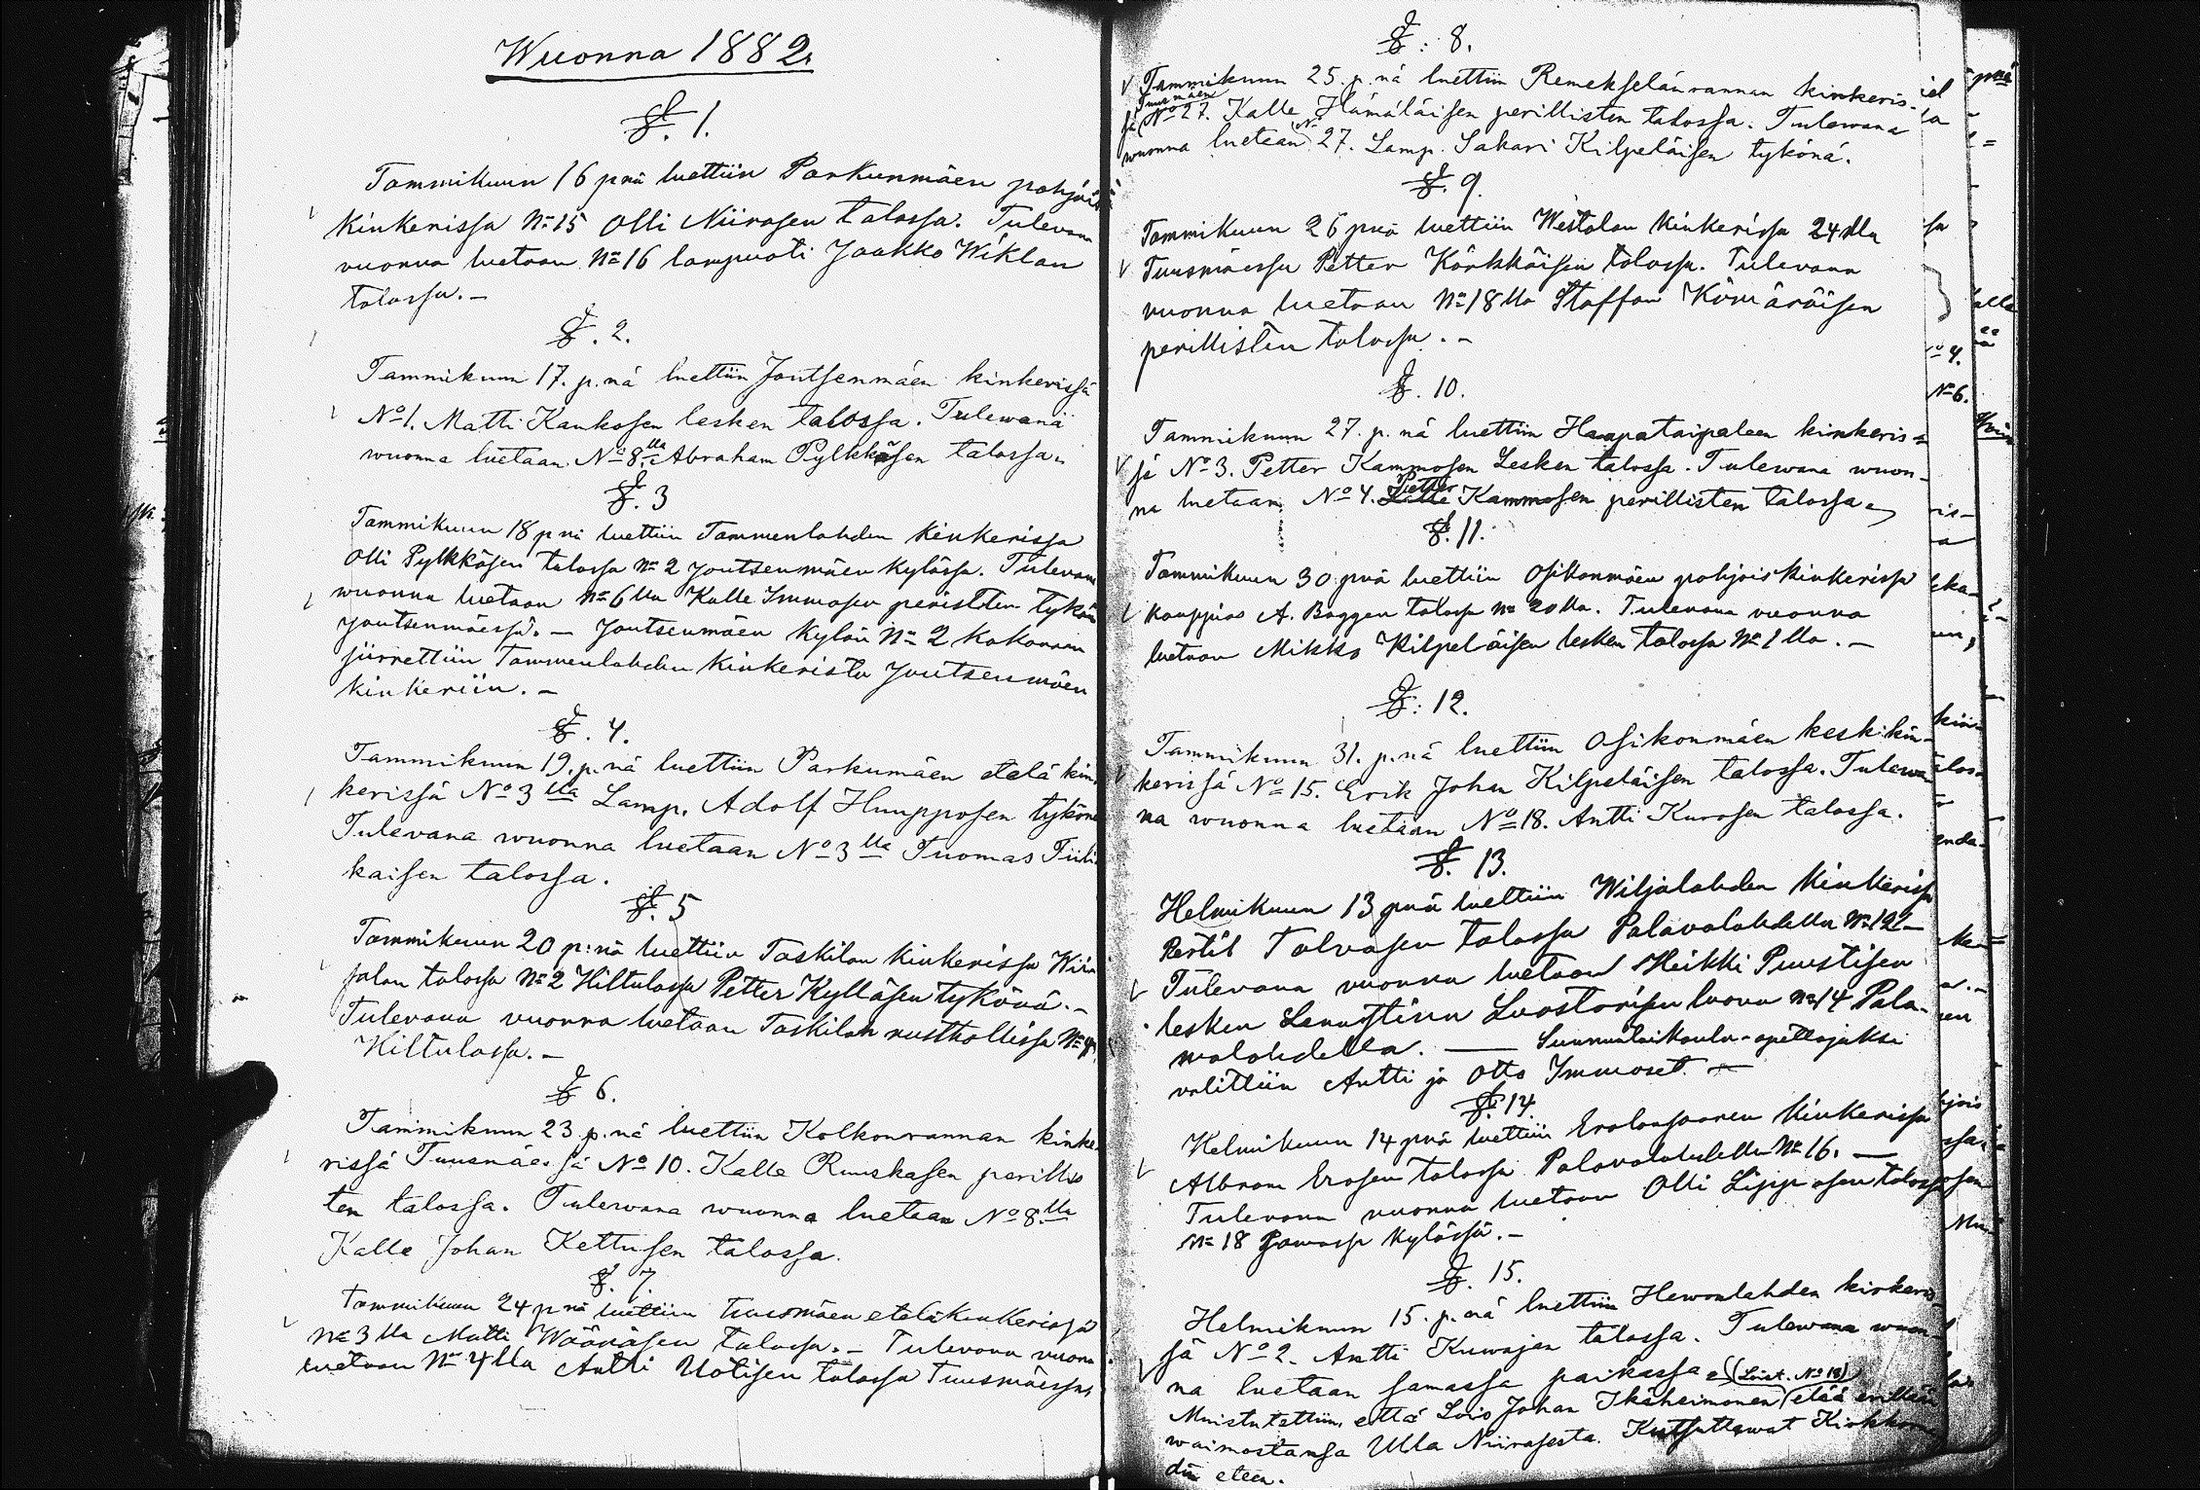 Wuonna 1882.
§. 1.
Tammikuun 16 pnä luettiin Parkunmäen pohjois
kinkerissa No 15 Olli Niirosen talossa. Tulevana
vuonna luetaan No 16 lampuoti Jaakko Wiklan
talossa. —
§. 2.
Tammikuun 17. p.nä luettiin Joutsenmäen kinkerissä
No 1. Matti Kankosen lesken talossa. Tulewana
wuonna luetaan No 8lla Abraham Pylkkäsen talossa.
§. 3
Tammikuun 18 pnä luettiin Tammenlahden kinkerissa
Olli Pylkkäsen talossa No 2 Joutsenmäen kylässa. Tulevana
wuonna luetaan No 6lla Kalle Immosen perillisten tykönä
Joutsenmäessä. — Joutsenmäen kylän No 2 kokonaan
siirrettiin Tammenlahden kinkeristä Joutsenmäen
kinkeriin. —
§. 4.
Tammikuun 19. p.nä luettiin Parkumäen etelä kin-
kerissä No 3lla Lamp. Adolf Huupposen tykönä
Tulevana wuonna luetaan No 3lla Tuomas Tiili-
kaisen talossa.
§. 5
Tammikuun 20 p:nä luettiin Taskilan kinkerissa
talossa No 2 Hiltulassa Petter Kylläsen tykönä. —
Tulevana vuonna luetaan Taskilan rusthollissa No 4
Hiltulassa. —
§ 6.
Tammikuun 23 p.nä luettiin Kolkonrannan kinke-
rissä Tuusmäessä No 10. Kalle Ruuskasen perillis
ten talossa. Tulewana wuonna luetaan No 8.lla
Kalle Johan Kettusen talossa.
§. 7.
Tammikuun 24 pnä luettiin Tuusmäen eteläkinkerissä
No 3lla Matti Wäänäsen talossa. — Tulevana vuonna
luetaan No 4lla Antti Uotisen talossa Tuusmäessä,
§: 8.
Tammikuun 25. p.nä luettiin Remekselänrannan kinkeris-
sä Tuusmäen No 27. Kalle Hämäläisen perillisten talossa. Tulewana
wuonna luetaan No 27. Lamp. Sakari Kilpeläisen tykönä.
§. 9.
Tammikuun 26 pnä luettiin Westolan kinkerissa 24lla
Tuusmäessa Petter Körkkäisen talossa. Tulevana
vuonna luetaan No 18lla Staffan Kämäräisen
perillisten talossa. —
§. 10.
Tammikuun 27. p. nä luettiin Haapataipaleen kinkeris-
sä No 3. Petter Kammosen Lesken talossa. Tulewana wuon-
na luetaan No 4. Petter Kammosen perillisten talossa
§. 11.
Tammikuun 30 pnä luettiin Osikonmäen pohjoiskinkerissa
kauppias A. Baggen talossa No 20lla. Tulevana vuonna
luetaan Mikko Kilpeläisen lesken talossa No 1lla. —
§: 12.
Tammikuun 31. p.nä luettiin Osikonmäen keskikin-
kerissä No 15. Erik Johan Kilpeläisen talossa. Tulewa
na wuonna luetaan No 18. Antti Kurosen talossa.
§. 13.
Helmikuun 13 pnä luettiin Wiljalahden kinkerissa
Pertil Tolvasen talossa Palavalahdella No 12 —
Tulevana vuonna luetaan Heikki Puustisen
lesken Luostarisen luona No 14 Pala-
valahdella. — Sunnuntaikoulu-opettajaksi
valittiin Antti ja Otto Immoset. —
§. 14.
Helmikuun 14 pnä luettiin Erolansaaren kinkerissa
Albram Erosen talossa Palavalahdella No 16. —
Tulevana vuonna luetaan Olli Lipposen talossa
No 18 samassa kylässä. —
§. 15.
Helmikuun 15. p.nä luettiin Hewonlahden kinkeris-
sä No 2. Antti Kuwajan talossa. Tulewana wuon-
na luetaan samassa paikassa
Muistutettiin, että Lois Johan Ikäheimonen (Loist. No 18) elää erillään
waimostansa Ulla Niirasesta. Kutsuttawat Kirkkon
din eteen.